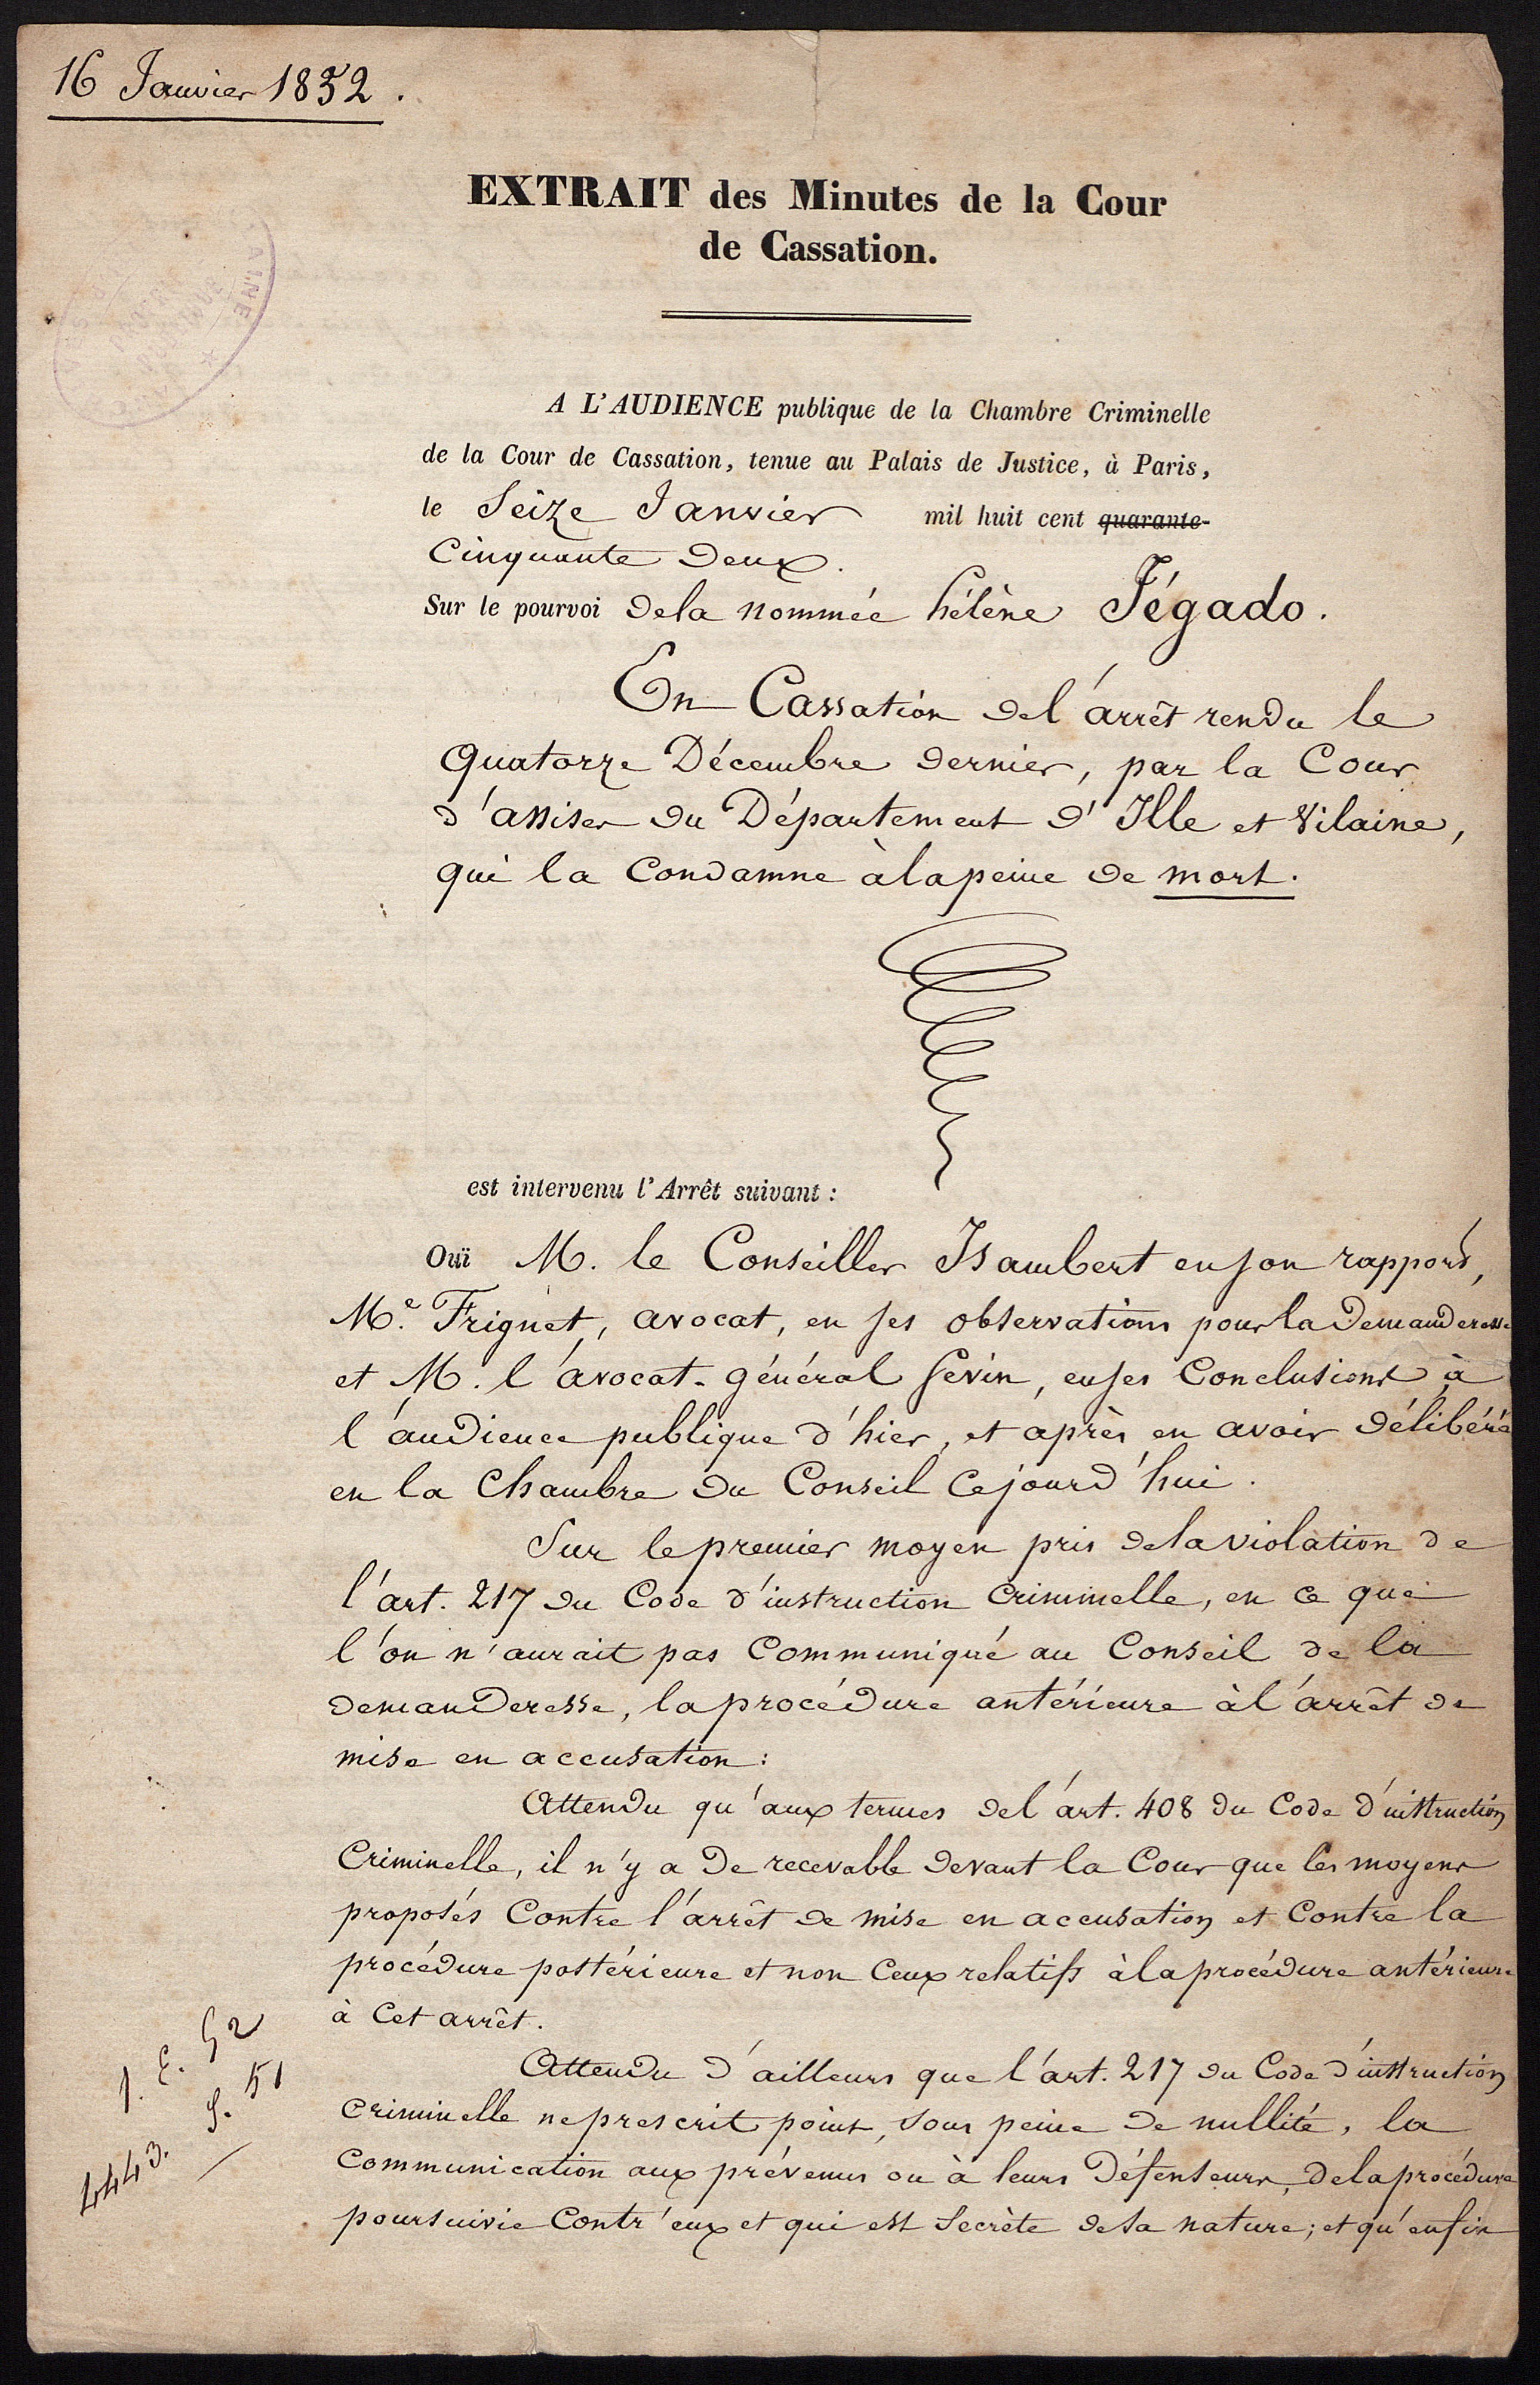 16 Janvier 1852.
EXTRAIT des Minutes de la Cour
de Cassation.
A L'AUDIENCE publique de la Chambre Criminelle
de la Cour de Cassation, tenue au Palais de Justice, à Paris,
le Seize Janvier mil huit cent quarante-
Cinquante Deux.
Sur le pourvoi de la nommée hélène Jégado.
En Cassation de l'arrêt rendu le
Quatorze Décembre dernier, par la Cour
d'assises du Département d'Ille et Vilaine,
qui la Condamne à la peine de mort.
est intervenu l'Arrêt suivant :
Ouï M. le Conseiller Isambert en son rapport,
Me. Frignet, avocat, en ses observations pour la Demanderesse
et M. l'avocat-général Sevin, en ses Conclusions à
l'audience publique d'hier, et après en avoir délibéré
en la Chambre du Conseil Cejourd'hui.
Sur le premier moyen pris de la violation de
l'art. 217 du Code d'instruction Criminelle, en ce que
l'on n'aurait pas Communiqué au Conseil de la
demanderesse, la procédure antérieure à l'arrêt de
mise en accusation :
Attendu qu'aux termes de l'art. 408 du Code d'instruction
Criminelle, il n'y a de recevable devant la Cour que les moyens
proposés Contre l'arrêt de mise en accusation et Contre la
procédure postérieure et non Ceux relatifs à la procédure antérieure
à Cet arrêt.
Attendu d'ailleurs que l'art. 217 du Code d'instruction
Criminelle ne prescrit point, sous peine de nullité, la
Communication aux prévenus ou à leurs Défenseurs, de la procédure
poursuivie Contr'eux et qui est Secrète de sa nature; et qu'enfin
4443.
S. 51